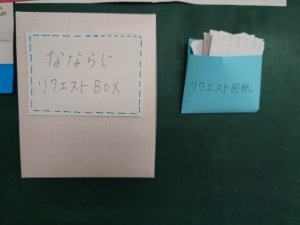 なならじ
リクエストBOX
リクエスト用紙